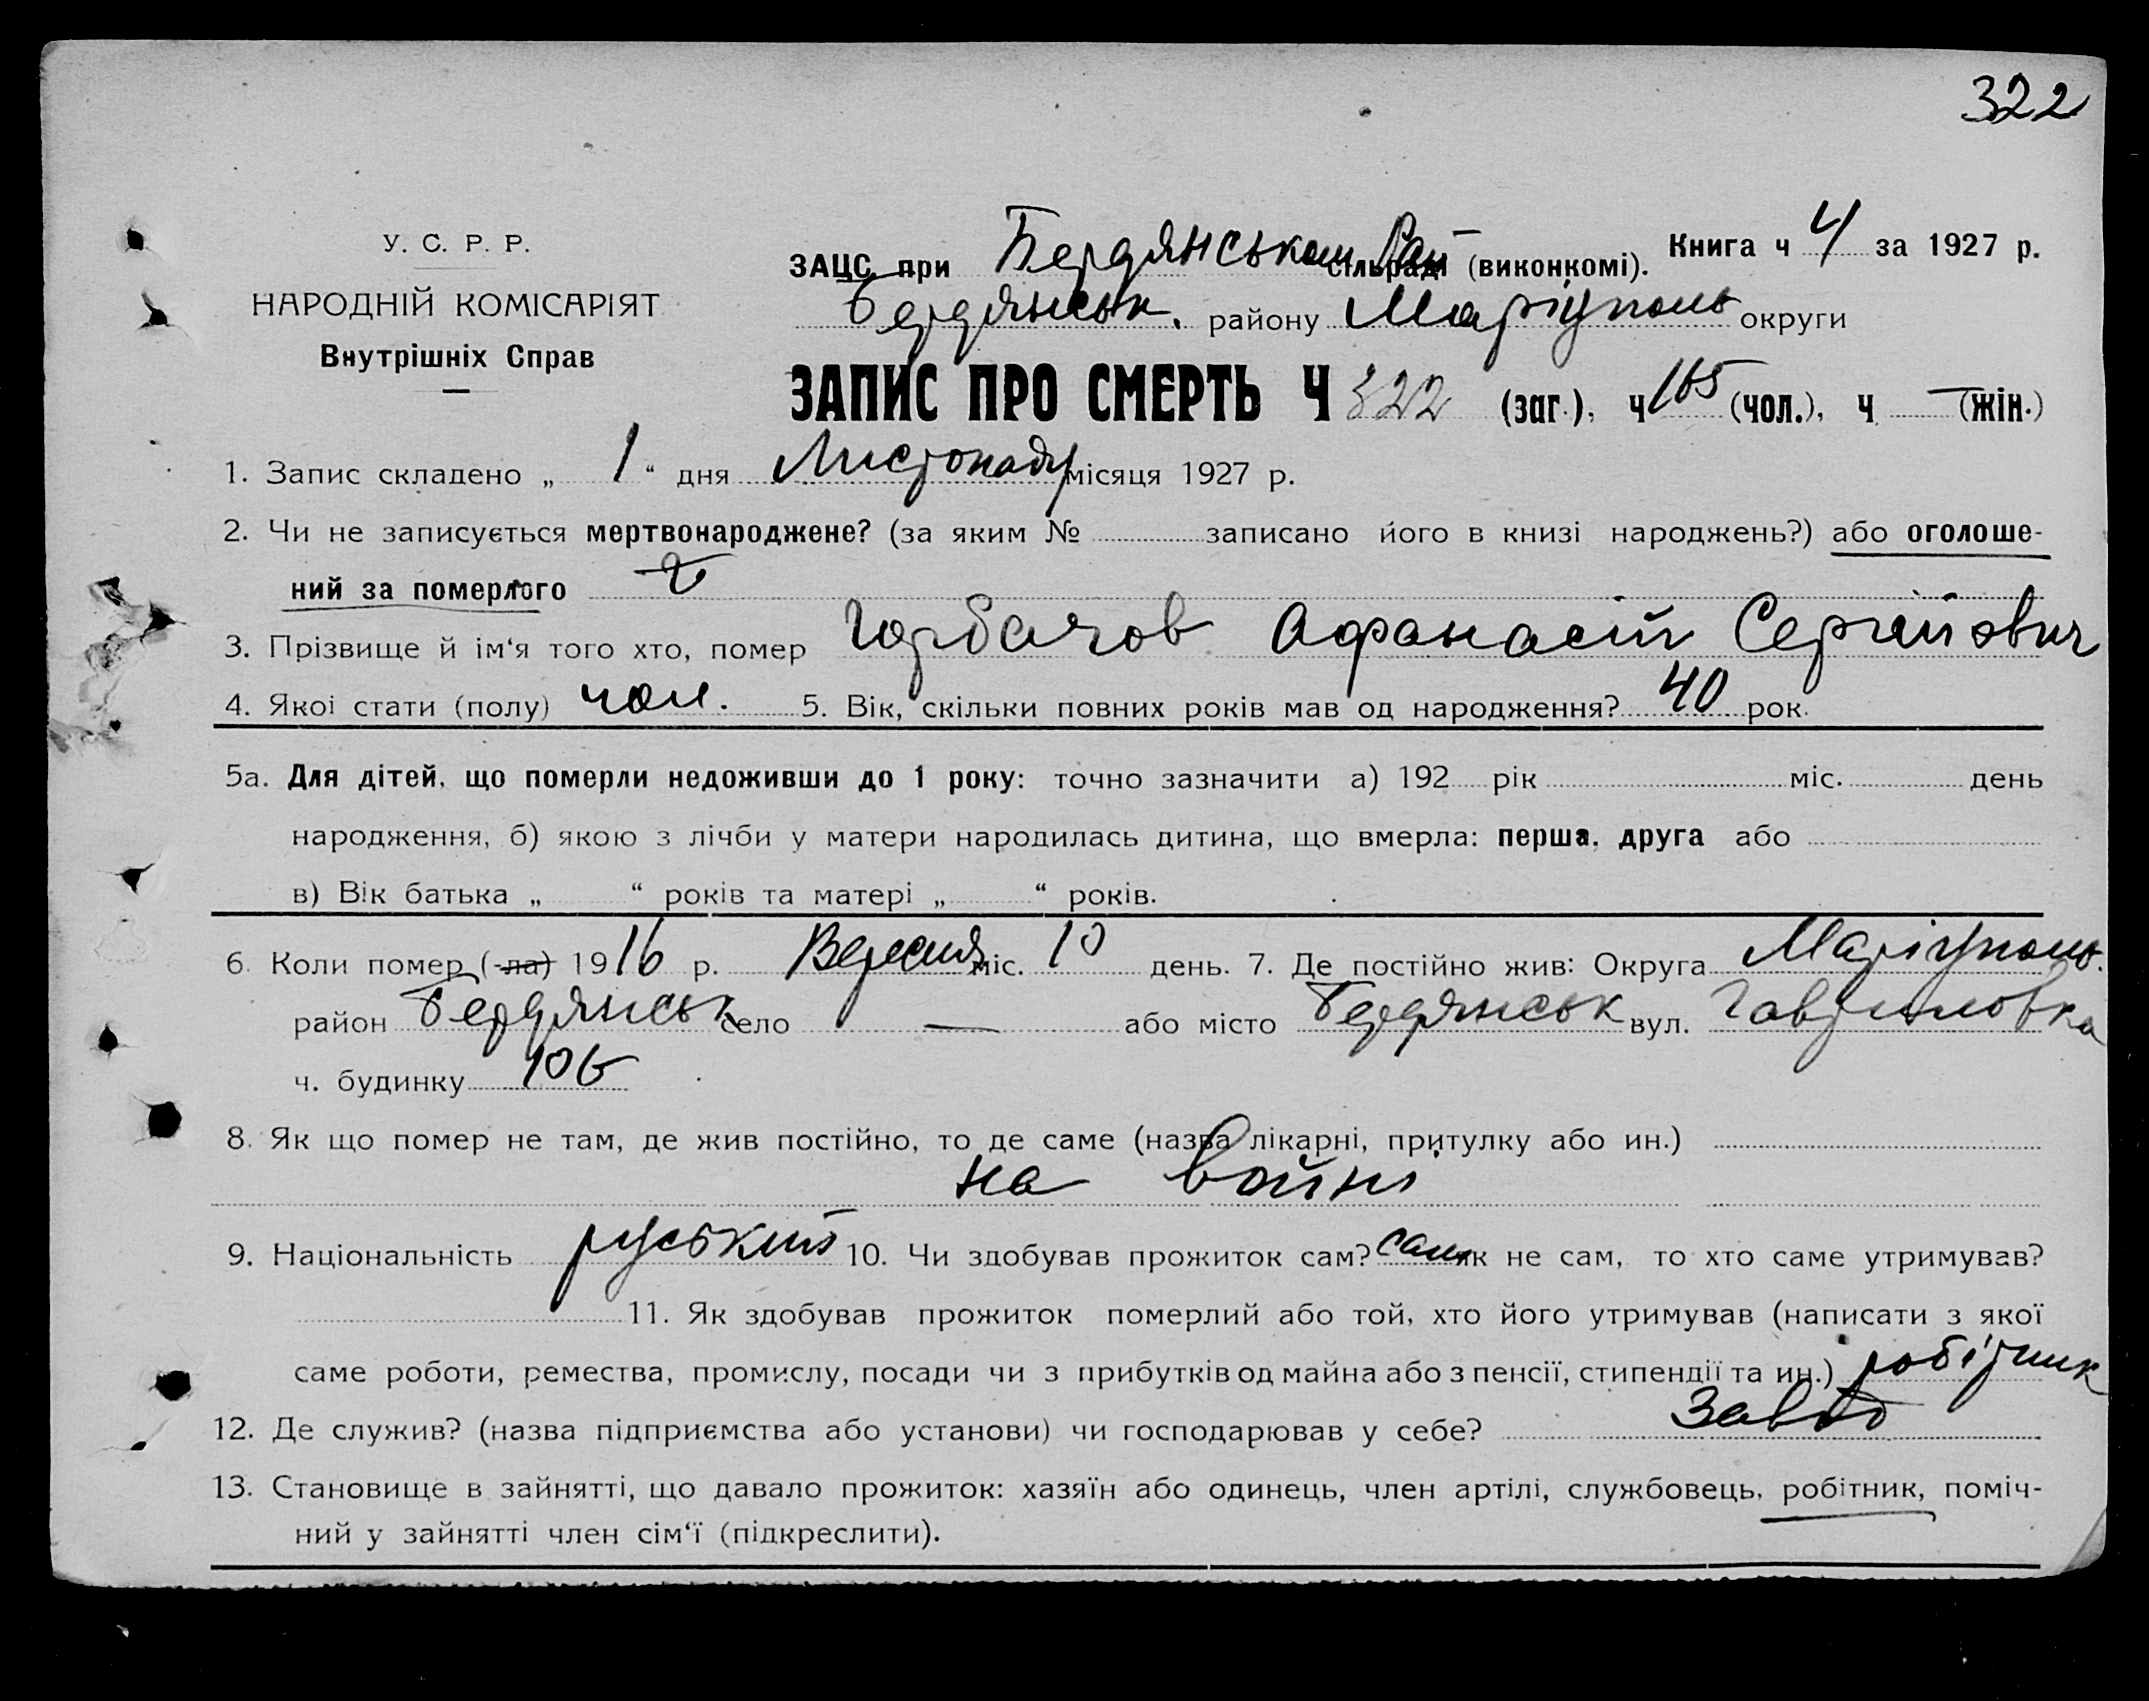 322
У. С. Р. Р.
НАРОДНІЙ КОМІСАРІЯТ
Внутрішніх Справ
ЗАЦС при Бердянськом Рай сільраді (виконкомі). Книга ч 4 за 1927 р.
Бердянськ. району Маріуполь округи
ЗАПИС ПРО СМЕРТЬ Ч 322 (заг.), ч 165 (чол.), ч — (жін.)
1. Запис складено „ 1 “ дня Листопаду місяця 1927 р.
2. Чи не записується мертвонароджене? (за яким № записано його в книзі народжень?) або оголоше-
ний за померлого
3. Прізвище й ім‘я того хто, помер Горбачов Афанасій Сергійович
4. Якої стати (полу) чол. 5. Вік, скільки повних років мав од народження? 40 рок.
5а. Для дітей, що померли недоживши до 1 року: точно зазначити а) 192 рік міс. день
народження, б) якою з лічби у матери народилась дитина, що вмерла: перша, друга або
в) Вік батька „ “ років та матері „ “ років.
6. Коли помер (-ла) 1916 р. Вересня міс. 10 день. 7. Де постійно жив: Округа Маріуполь.
район Бердянськ село — або місто Бердянськ вул. Гавриловка
ч. будинку 106
8. Як що помер не там, де жив постійно, то де саме (назва лікарні, притулку або ин.)
на войні
9. Національність руський 10. Чи здобував прожиток сам? сам як не сам, то хто саме утримував?
11. Як здобував прожиток померлий або той, хто його утримував (написати з якої
саме роботи, ремества, промислу, посади чи з прибутків од майна або з пенсії, стипендії та ин.) робітник
12. Де служив? (назва підприємства або установи) чи господарював у себе? Завод
13. Становище в зайнятті, що давало прожиток: хазяїн або одинець, член артілі, службовець, робітник, поміч-
ний у зайнятті член сім‘ї (підкреслити).